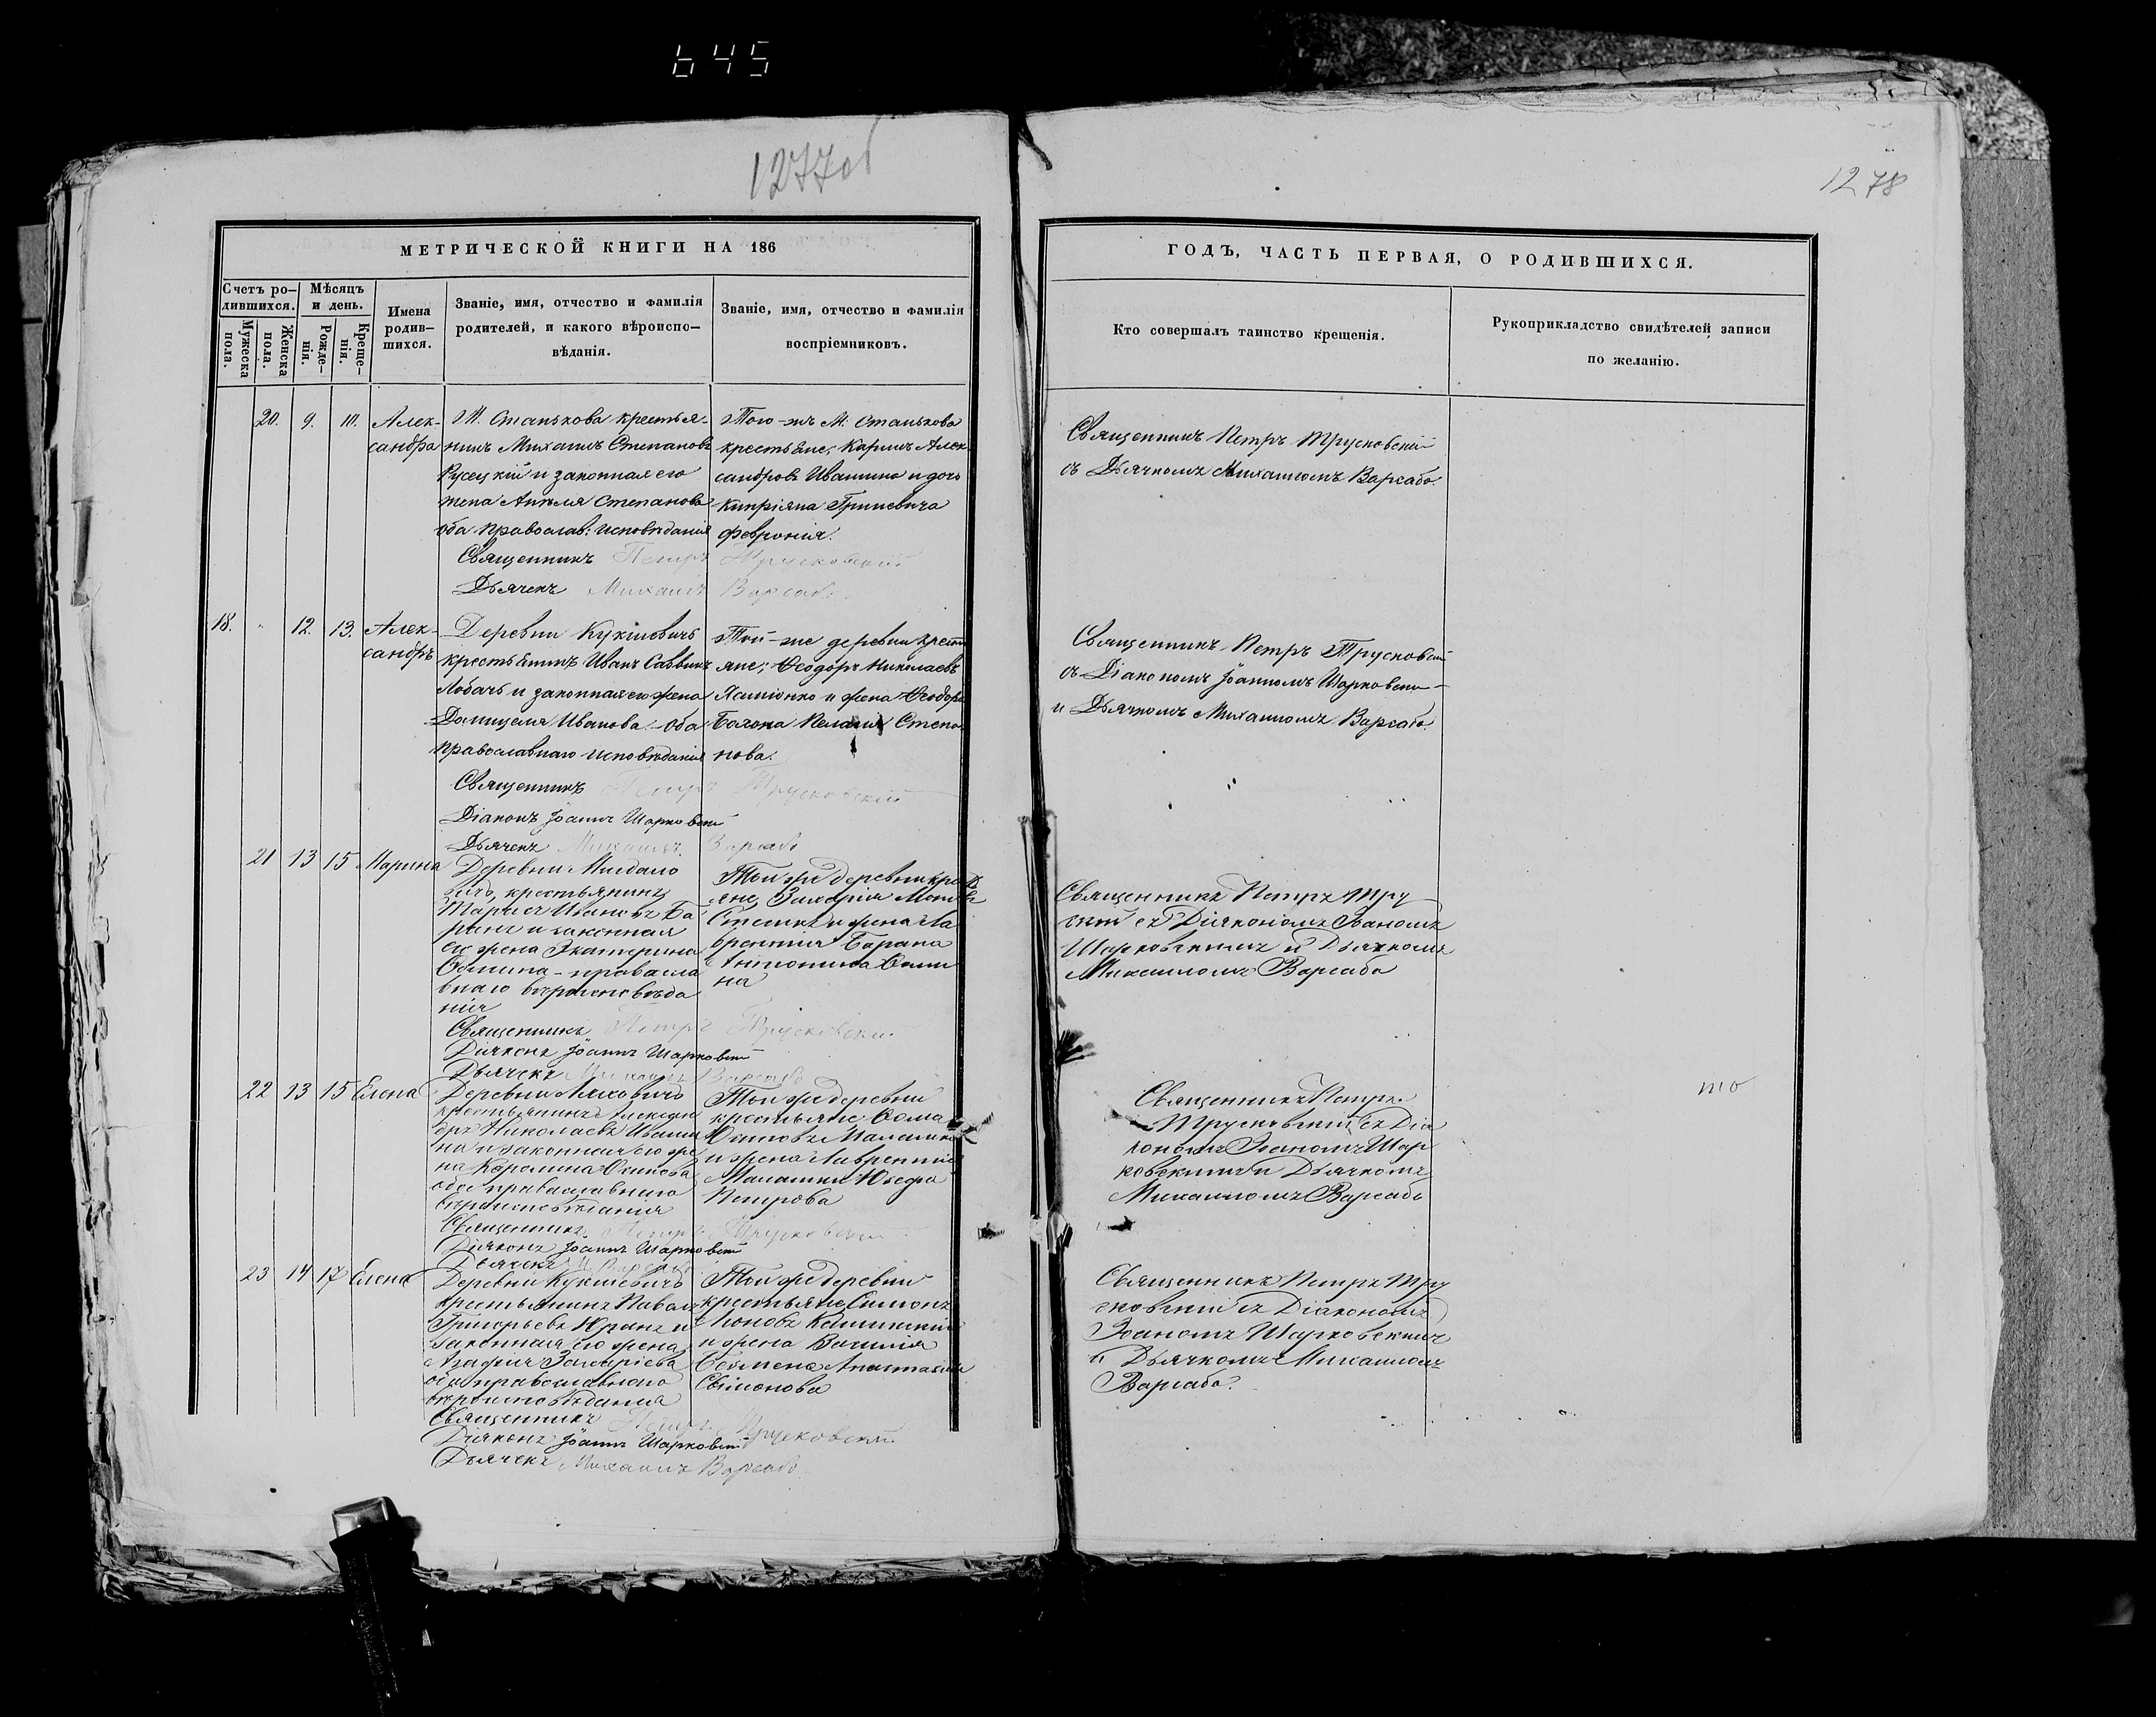 645
1277об
1278
МЕТРИЧЕСКОЙ КНИГИ НА 186
Счетъ ро-
дившихся.
Мужеска
пола.
Женска
пола.
Мѣсяцъ
и день.
Рожде-
нія.
Креще-
нія.
Имена
родив-
шихся.
Званіе, имя, отчество и фамилія
родителей, и какого вѣроиспо-
вѣданія.
Званіе, имя, отчество и фамилія
воспріемниковъ.
ГОДЪ, ЧАСТЬ ПЕРВАЯ, О РОДИВШИХСЯ.
Кто совершалъ таинство крещенія.
Рукоприкладство свидѣтелей записи
по желанію.
20. 9. 10.
Алек-
сандра
М. Станькова крестья-
нинъ Михаилъ Степановъ
Русецкій и законная его
жена Анѣля Степанова
оба православ: исповѣданія
Священникъ Петръ Трусковскій
Дьячекъ Михаилъ Варсабо.
Того-же М: Станькова
крестьяне; Карпъ Алек
сандровъ Ивашино и дочь
Кипріяна Гриневича
Февронія.
Священникъ Петръ Трусковскій
съ Дьячкомъ Михаиломъ Варсабо.
18. 12. 13.
Алек-
сандръ
Деревни Кукшевичь
крестьянинъ Иванъ Саввинъ
Лобачь и законная его жена
Домицеля Иванова. - Оба
православнаго исповѣданія
Священникъ Петръ Трусковскій
Діаконъ Іоаннъ Шарковскій
Дьячекъ Михаилъ Варсабо
Той-же деревни крест
яне; Ѳеодоръ Николаевъ
и жена Ѳеодора
Степа
нова.
Священникъ Петръ Трусковскій
съ Діакономъ Іоанномъ Шарковски-
и Дьячкомъ Михаиломъ Варсабо.
21 13 15 Марина
Деревни
крестьянинъ
Ивановъ Ба
ранъ и законная
его жена Екатерина
Ѳомина - правосла
внаго вѣроисповѣда
нія
Священникъ Петръ Трусковскій
Діяконъ Іоаннъ Шарковскій
Дьячекъ Михаилъ Варсабо
Той же деревни крес
яне, Захарія
и жена Ла
врентія Барана
Антонина Ѳоми
на
Священникъ Петръ Тру
скій съ Діякономъ Іоаномъ
Шарковскимъ и Дьячкомъ
Михаиломъ Варсабо
22 13 15 Елена
Деревни Ляховичь
крестьянинъ Алексан
дръ Николаевъ Иваши
на и законная его же
на Каролина Осипова
обое православнаго
вѣроисповѣданія
Священникъ Петръ Трусковскій
Діяконъ Іоаннъ Шарковскій
Дьячекъ М. Варсабо
Той же деревни
крестьяне; Ѳома
Осиповъ
и жена Лаврентія
Юзефа
Петрова
Священникъ Петръ
Трусковскій съ Діа
кономъ Іоаномъ Шар
ковскимъ и Дьячкомъ
Михаиломъ Варсабо
23 14 17 Елена
Деревни Кукшевичь
крестьянинъ Павелъ
Григорьевъ Юранъ и
законная его жена
Агафія Захаріева
оба православнаго
вѣроисповѣданія
Священникъ Петръ Трусковскій
Діяконъ Іоаннъ Шарковскій
Дьячекъ Михаилъ Варсабо
Той же деревни
крестьяне Симонъ
и жена Василія
Анастасія
Симонова
Священникъ Петръ Тру
сковскій съ Діакономъ
Іоаномъ Шарковскимъ
и Дьячкомъ Михаиломъ
Варсабо.